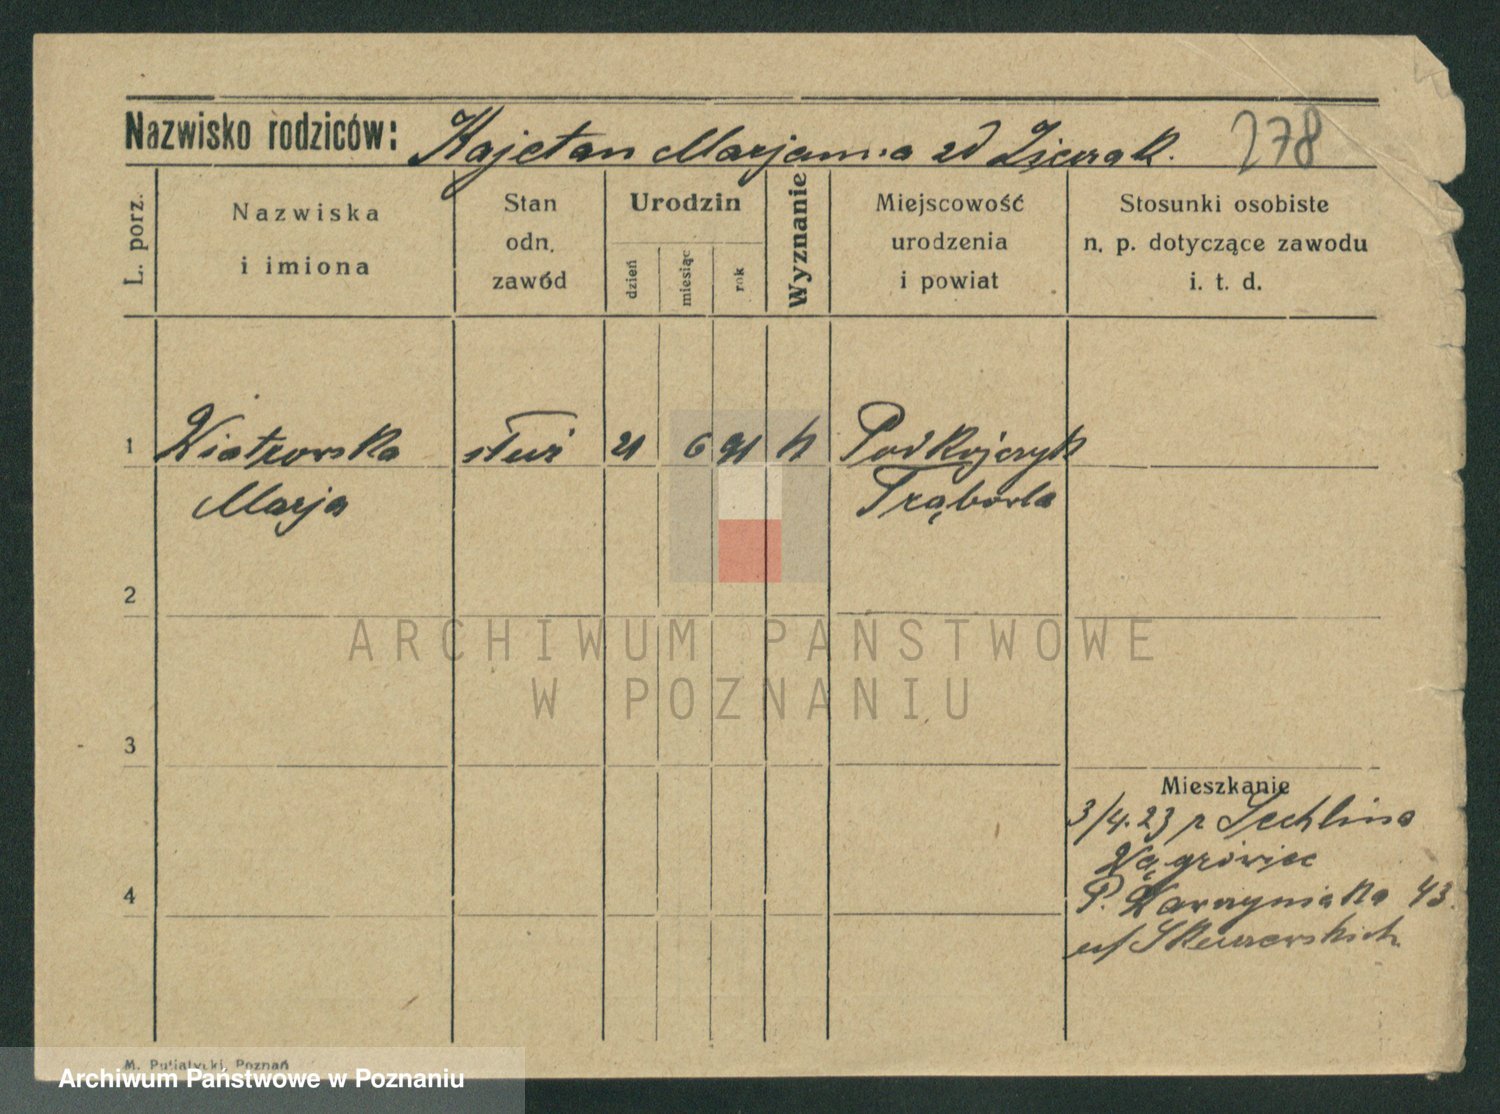 Nazwisko rodziców: Kajetan Marjanna zd 278
L. porz.
Nazwiska
i imiona
Stan
odn.
zawód
Urodzin
dzień
miesiąc
rok
Wyznanie
Miejscowość
urodzenia
i powiat
Stosunki osobiste
n. p. dotyczące zawodu
i. t. d.
1 Wiatrowska służ 21 6 91 k
Marja
2
ARCHIWUM PAŃSTWOWE
W POZNANIU
3
Mieszkanie
3/4.23 z
Wągrówiec
4
P. Wawrzyniaka 43.
M. Putiatycki, Poznań
Archiwum Państwowe w Poznaniu